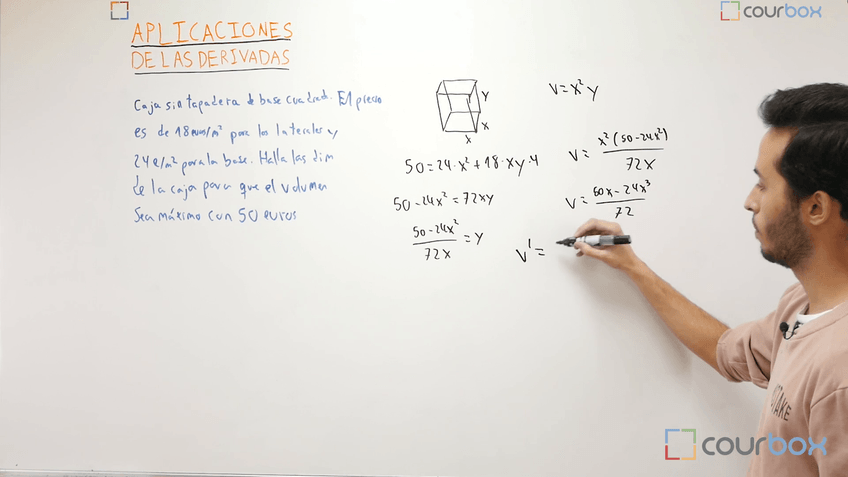 APLICACIONES
DE LAS DERIVADAS
Caja sin tapadera de base cuadrada. El precio
es de 18 euros/m² para los laterales y
24€/m² para la base. Halla las dim
de la caja para que el volumen
Sea máximo con 50 euros
Y
X
X
50=24·x²+18·xy·4
50-24x²=72xy
50-24x²
72x
=y
V=x²y
V=
x²(50-24x²)
72x
V=
50x-24x³
72
V'=
courbox
courbox
TAKE